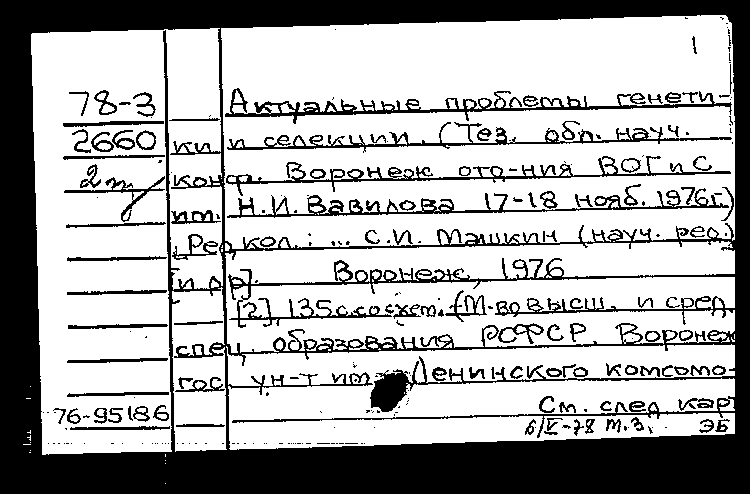 1
78-3 Актуальные проблемы генети-
2660 ки и селекции. (Тез. обл. науч.
2 т конф. Воронеж отд-ния ВОГиС
им. Н.И. Вавилова 17-18 нояб. 1976г.)
[Ред. кол.: ... С.И. Машкин (науч. ред.)
[и др]. Воронеж, 1976
[2], 135 с. со схем. (М-во высш. и сред.
спец. образования РСФСР. Воронеж
гос. ун-т им. Ленинского комсомо-
76-95186 См. след карт
6/V-78 т.3. ЭБ